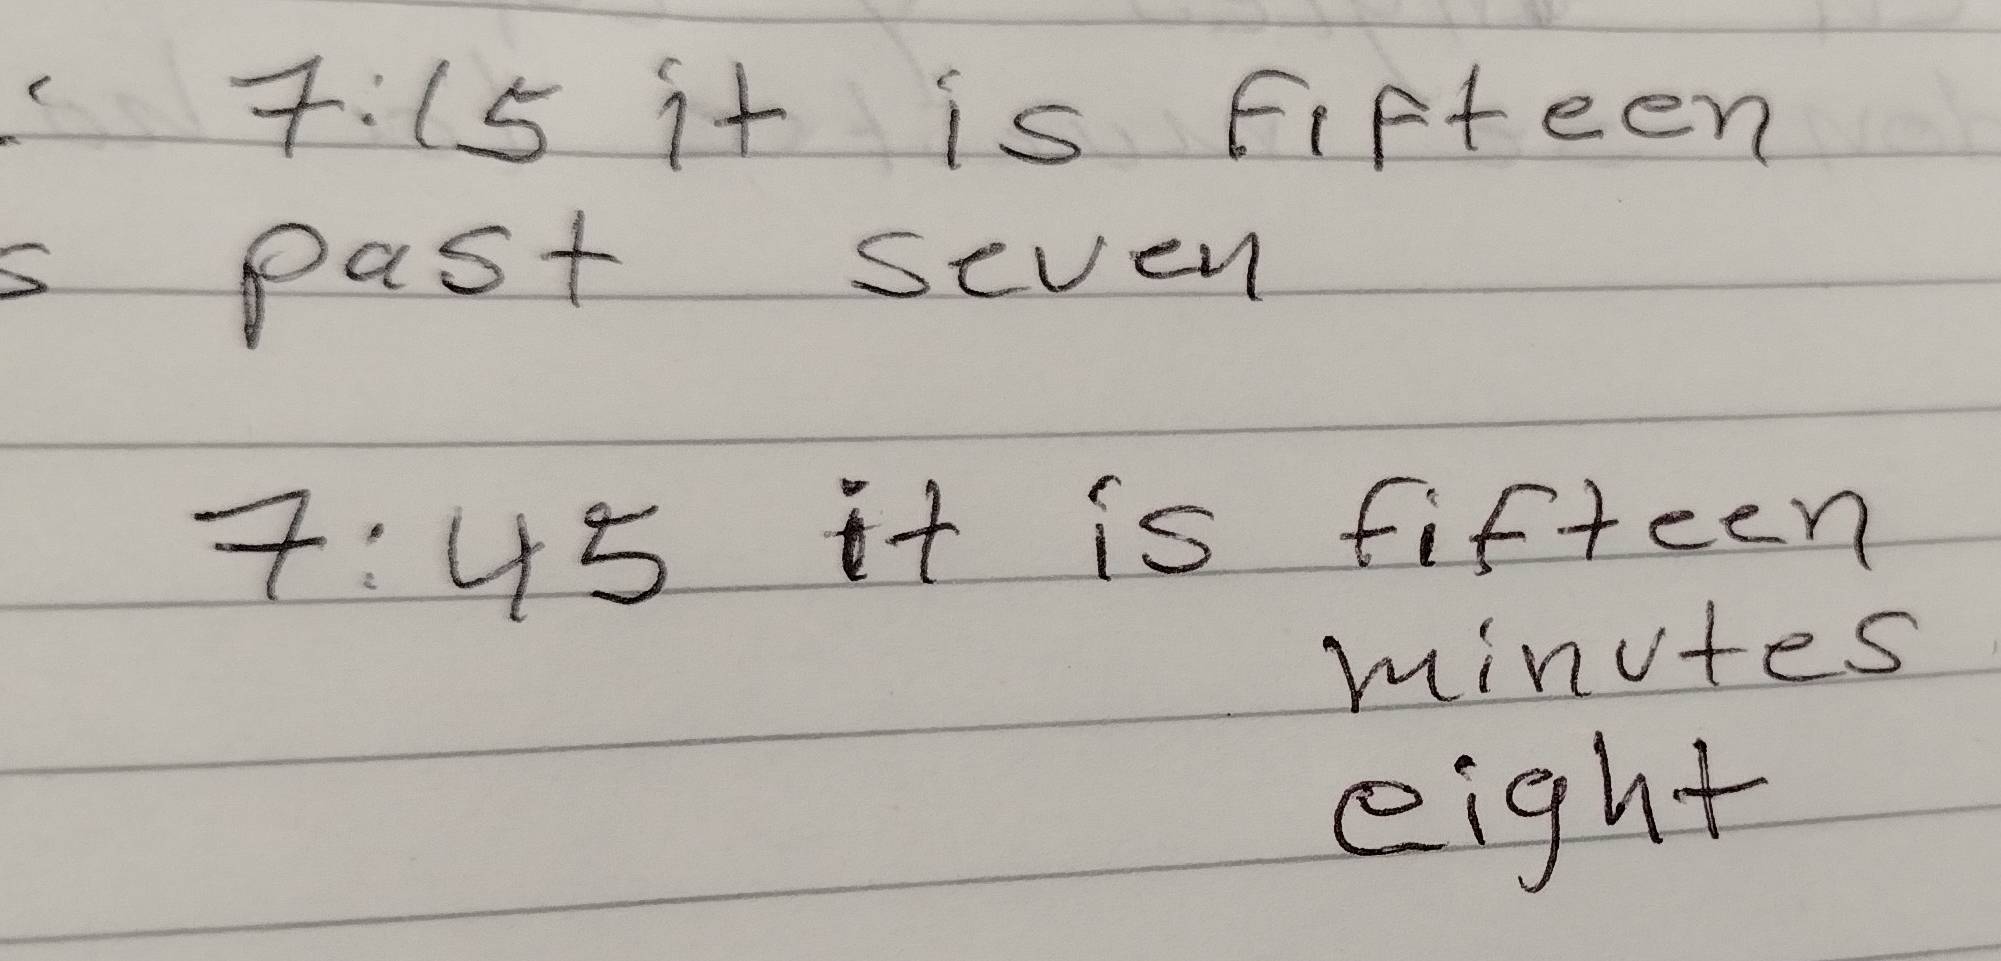 7:15 it is fifteen
s past seven
7:45 it is fifteen
minutes
eight